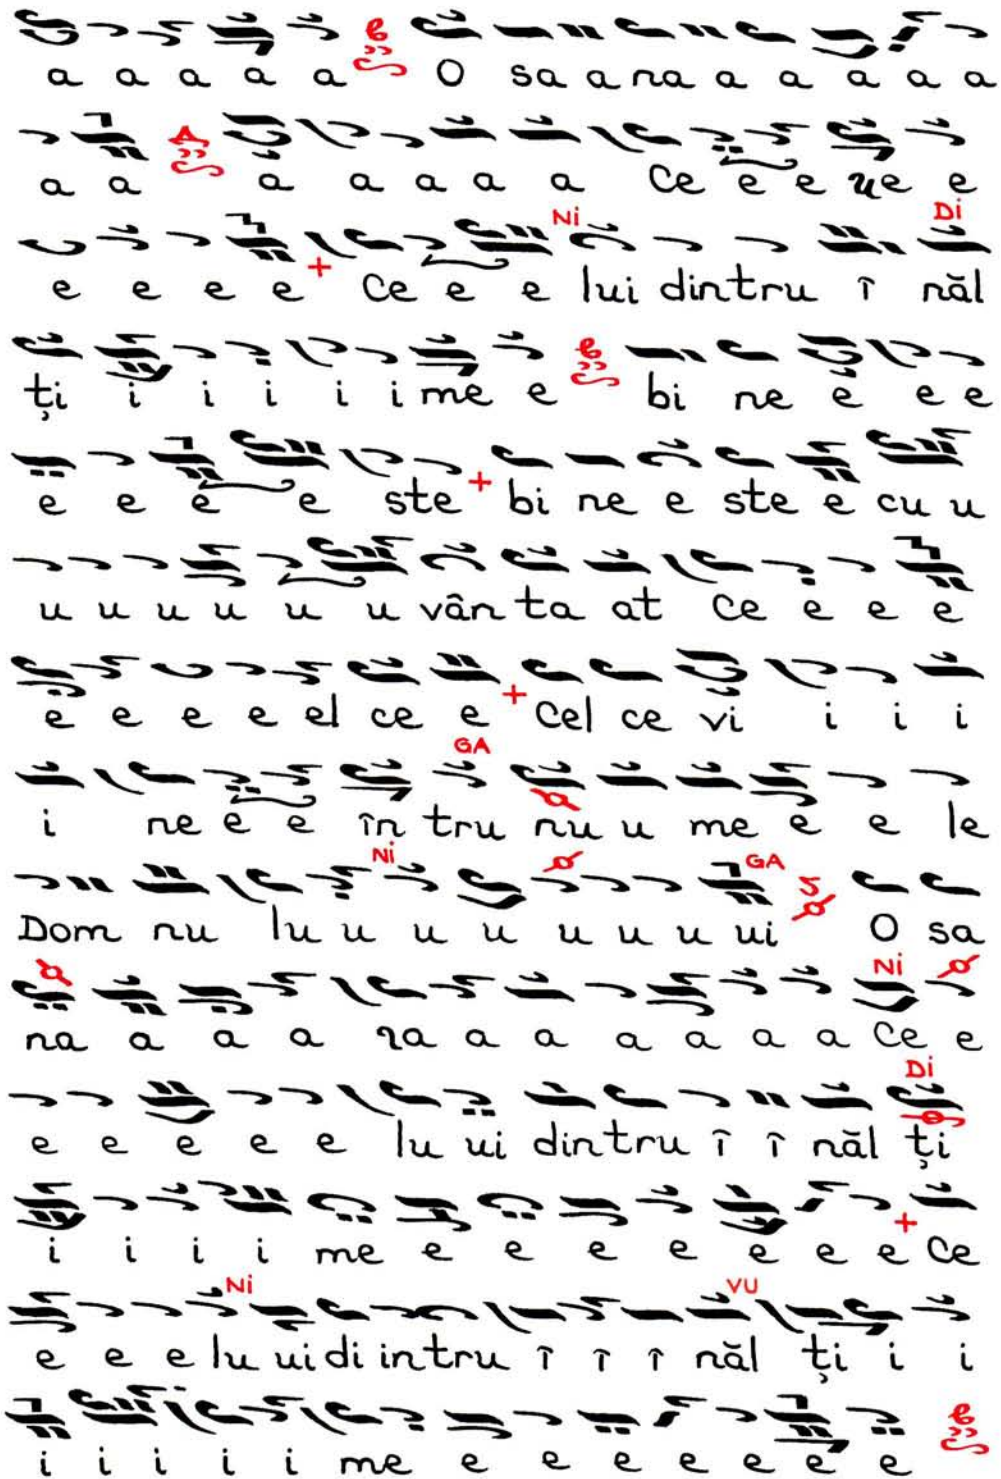 a a a a a O sa a na a a a a a
a a a a a a a Ce e e ue e
Ni Di
e e e e Ce e e lui dintru î năl
ți i i i i i me e bi ne e e e
e e e e ste bi ne e ste e cu u
u u u u u u vân ta at Ce e e e
e e e e el ce e Cel ce vi i i i
GA
i ne e e în tru nu u me e e le
Ni GA
Dom nu lu u u u u u u ui O sa
Ni
na a a a ra a a a a a a Ce e
Di
e e e e e lu ui dintru î î năl ți
i i i i me e e e e e e e Ce
Ni VU
e e e lu ui di intru î î î năl ți i i
i i i i i me e e e e e e